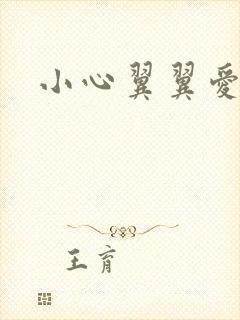 小心翼翼爱
王育